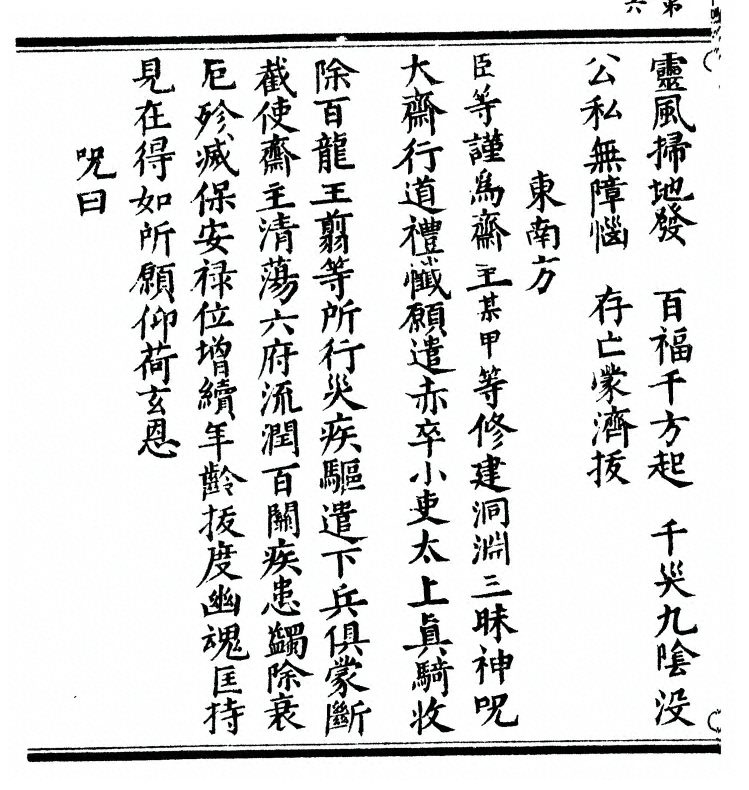 第
六
靈風掃地發　百福千方起　千災九陰没
公私無障惱　存亡蒙濟拔
東南方
臣等謹爲齋主某甲等修建洞淵三昧神呪
大齋行道禮懺願遣赤卒小吏太上眞騎收
除百龍王翦等所行災疾驅遣下兵俱蒙斷
截使齋主清蕩六府流潤百關疾患蠲除衰
厄殄滅保安禄位增續年齡拔度幽魂匡持
見在得如所願仰荷玄恩
呪曰